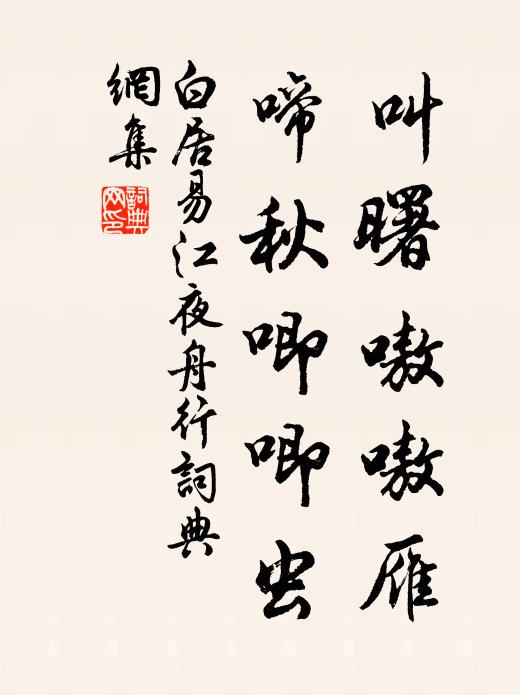 叫曙嗷嗷雁
啼秋唧唧虫
白居易江夜舟行詞典
網集
詞典網印